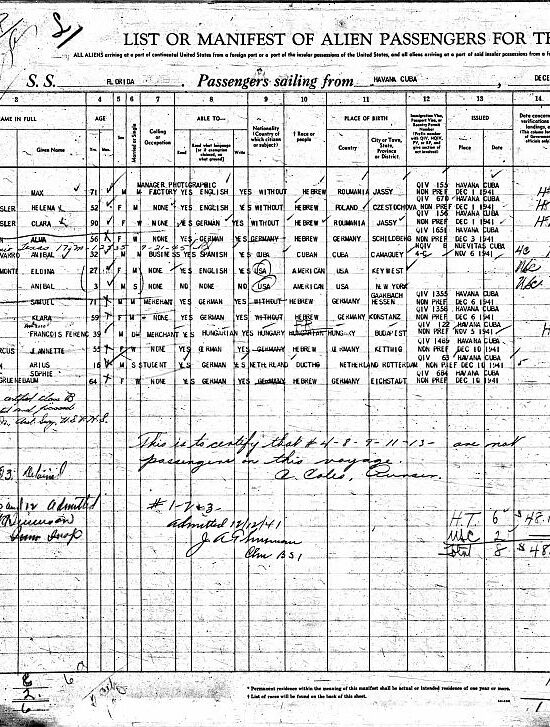 LIST OR MANIFEST OF ALIEN PASSENGERS FOR TH
ALL ALIENS arriving at a port of continental United States from a foreign port or a port of the insular possessions of the United States, and all aliens arriving at a port of said insular possessions from a
S. S. FLORIDA Passengers sailing from HAVANA CUBA , DECE
3 4 5 6 7 8 9 10 11 12 13 14
AME IN FULL AGE Sex Married or Single Calling or Occupation ABLE TO— Nationality (Country of which citizen or subject) † Race or people PLACE OF BIRTH ISSUED
Given Name Yrs. Mos. Read Write Country City or Town, State, Province or District Place Date
MANAGER PHOTOGRAPHIC QIV 155 HAVANA CUBA
MAX 71 M M FACTORY YES ENGLISH YES WITHOUT HEBREW ROUMANIA JASSY NON PREF DEC 1 1941
QIV 670 HAVANA CUBA
SLER HELENA 52 F M NONE YES ENGLISH YES WITHOUT HEBREW POLAND CZESTOCHOVA NON PREF DEC 1 1941
QIV 156 HAVANA CUBA
SLER CLARA 90 F W NONE YES GERMAN YES WITHOUT HEBREW ROUMANIA JASSY NON PREF DEC 1 1941
QIV 1651 HAVANA CUBA
ALMA 56 F W NONE YES GERMAN YES GERMANY HEBREW GERMANY SCHILDBERG NON PREF DEC 3 1941
NUEVITAS CUBA
ANIBAL 32 M M BUSINESS YES SPANISH YES CUBA CUBAN CUBA CAMAGUEY NOV 6 1941
MONTE ELDINA 27 F M NONE YES ENGLISH YES USA AMERICAN USA KEY WEST
ANIBAL 3 M S NONE NO NONE NO USA AMERICAN USA NEW YORK
QIV 1355 HAVANA CUBA
SAMUEL 71 M M MERCHANT YES GERMAN YES WITHOUT HEBREW GERMANY HESSEN NON PREF DEC 6 1941
QIV 1356 HAVANA CUBA
KLARA 59 F M NONE YES GERMAN YES WITHOUT HEBREW GERMANY KONSTANZ NON PREF DEC 6 1941
QIV 122 HAVANA CUBA
FRANCOIS FERENC 39 M MERCHANT YES HUNGARIAN YES HUNGARY HUNGARIAN HUNGARY BUDAPEST NON PREF NOV 5 1941
QIV 1485 HAVANA CUBA
RCUS JEANNETTE 55 F W NONE YES GERMAN YES GERMANY HEBREW GERMANY KETTWIG NON PREF DEC 10 1941
QIV 63 HAVANA CUBA
ARIUS 16 M S STUDENT YES GERMAN YES NETHERLAND DUCTHG NETHERLAND ROTTERDAM NON PREF DEC 10 1941
SOPHIE QIV 684 HAVANA CUBA
GRUENEBAUM 64 F W NONE YES GERMAN YES GERMANY HEBREW GERMANY EICHSTADT NON PREF DEC 10 1941
This is to certify that # 4-8-9-11-13- are not
passengers on this voyage.
A. Coles, Purser.
and 12 Admitted
# 1-2&3
Admitted 12/12/41
Chm BSI
H.T. 6 $48.
USC 2
Total 8 $48.
* Permanent residence within the meaning of this manifest shall be actual or intended residence of one year or more.
† List of races will be found on the back of this sheet.